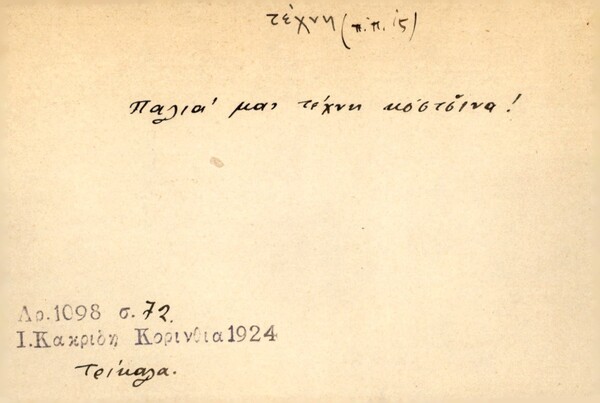 τέχνη (π.π. ιϛ)
Παλιά μας τέχνη κόστσινα!
Αρ. 1098 σ. 72.
Ι. Κακριδη Κορινθια 1924
Τρίκαλα.